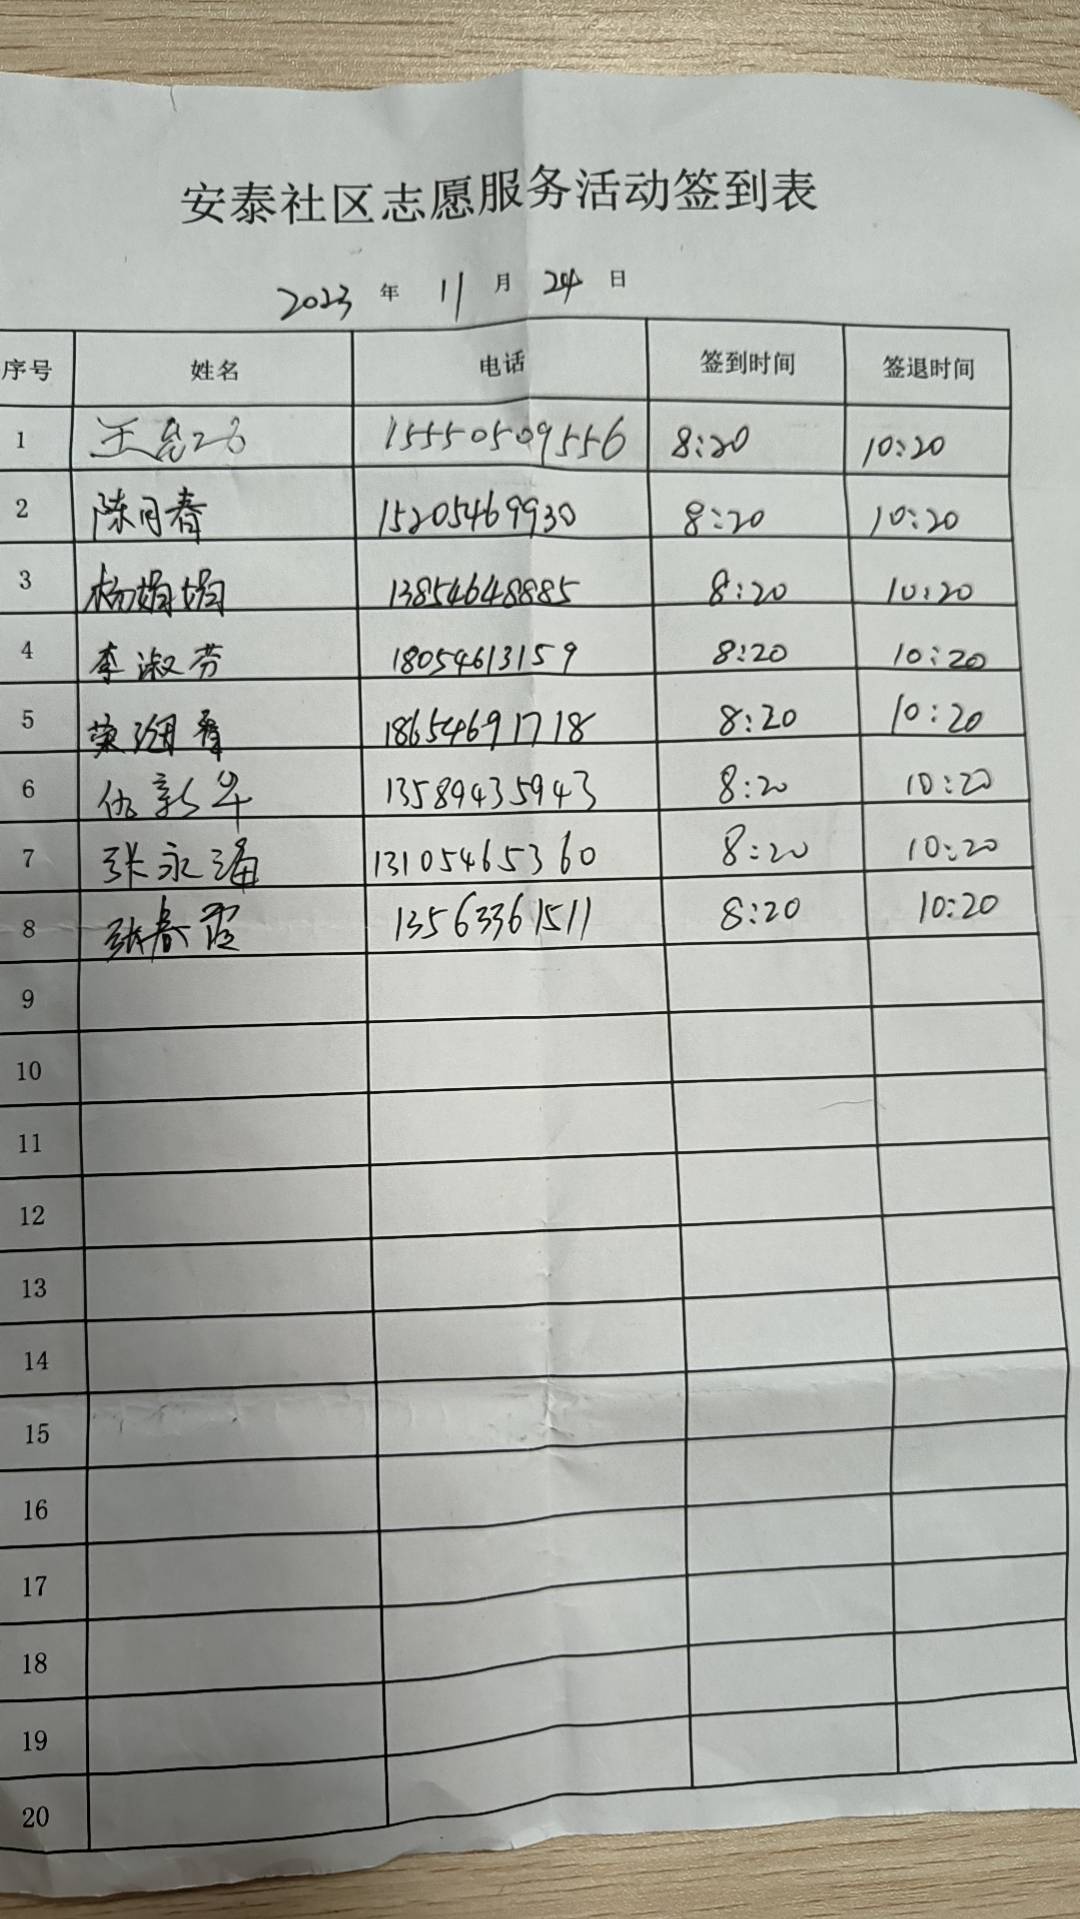 安泰社区志愿服务活动签到表
2023 年 11 月 24 日
序号 姓名 电话 签到时间 签退时间
1 王 15550509556 8:20 10:20
2 陈月春 15205469930 8:20 10:20
3 杨娟娟 13854648885 8:20 10:20
4 李淑芬 18054613159 8:20 10:20
5 18654691718 8:20 10:20
6 仇新华 13589435943 8:20 10:20
7 张永海 13105465360 8:20 10:20
8 张春霞 13563361511 8:20 10:20
9
10
11
12
13
14
15
16
17
18
19
20